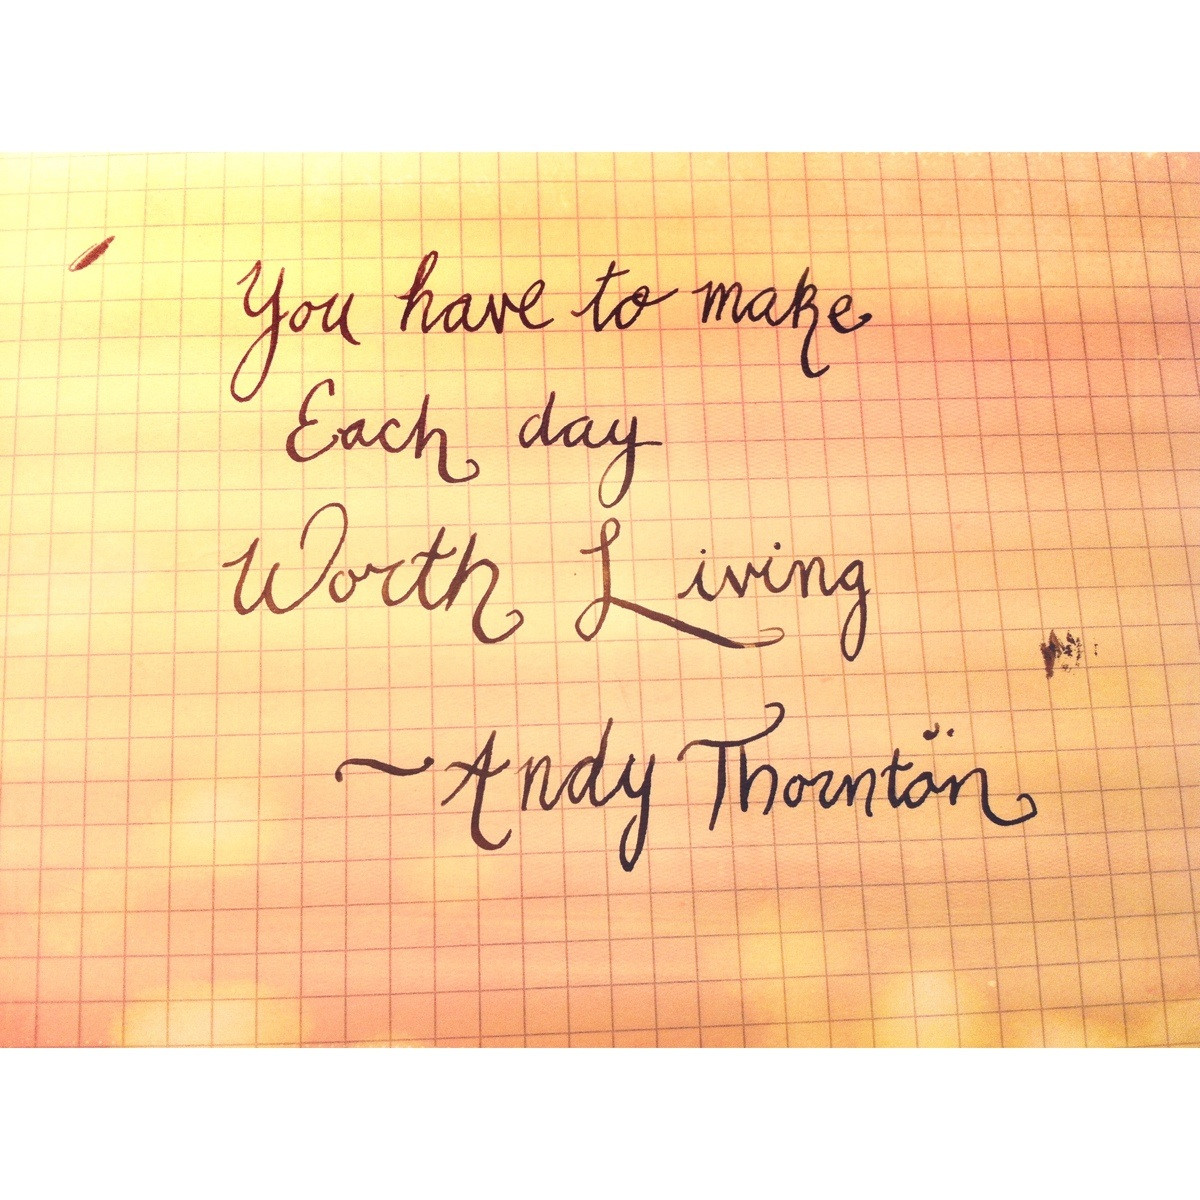 You have to make
Each day
Worth Living
~Andy Thorntön